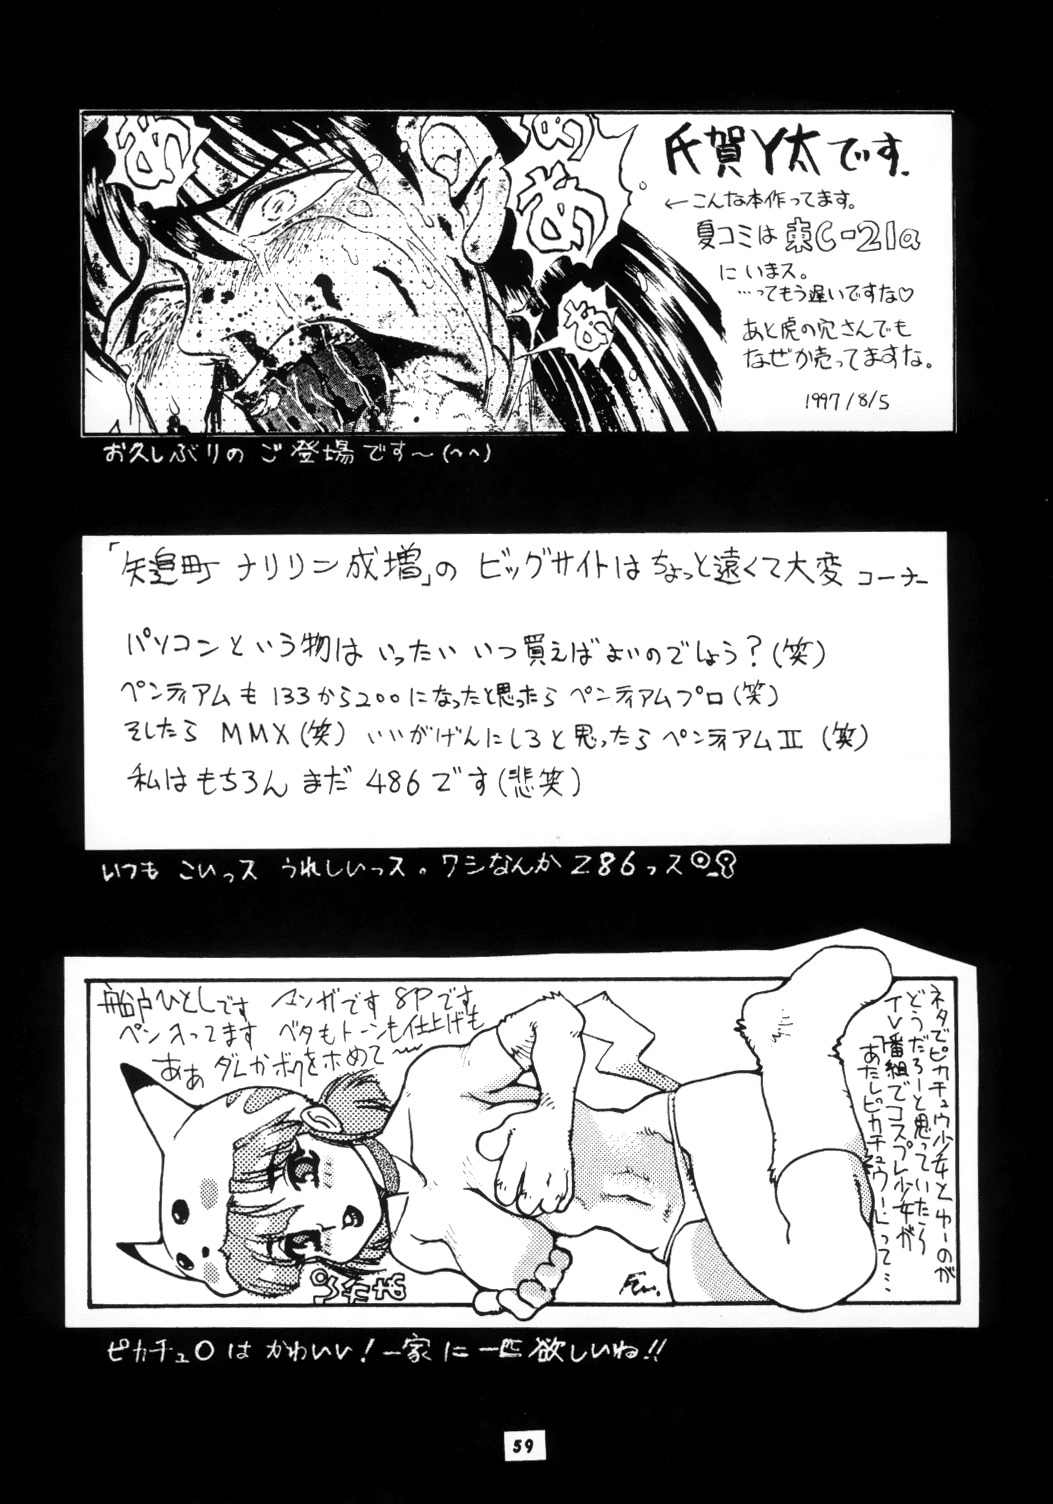 氏賀Y太です.
←こんな本作ってます。
夏コミは 東C-21a
にいまス。
…ってもう遅いですな♡
あと虎の穴さんでも
なぜか売ってますな。
1997/8/5
あ
ああ
あ
あ
お久しぶりの ご登場です〜(^^)
「矢追町 ナリリン成増」の ビッグサイトはちょっと遠くて大変 コーナー
パソコンという物は いったい いつ買えばよいのでしょう?(笑)
ペンティアムも 133から200になったと思ったら ペンティアムプロ(笑)
そしたら MMX(笑) いいかげんにしろと思ったら ペンティアムⅡ (笑)
私はもちろん まだ 486です(悲笑)
いつも こいっス うれしいっス。ワシなんか 286っス
船戸ひとしです マンガです 8Pです
ペン入ってます ベタもトーンも仕上げも
ああ ダレかボクをホめて〜
ネタでピカチュウ少女とゆーのが
どうだろーと思っていたら
TV番組でコスプレ少女が
「あたしピカチュウー」って…
ピカチュ〇は かわいい! 一家に 一匹 欲しいね!!
59